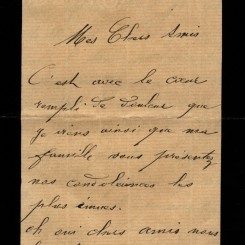 Mes Chers Amis
C'est avec le cœur
rempli de douleur que
je viens ainsi que ma
famille vous présentez
nos condoléances les
plus émues.
oh oui chers amis nous